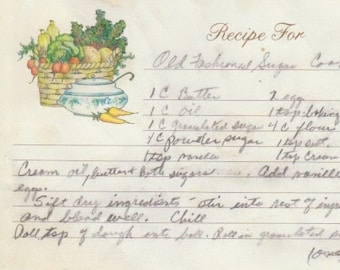 Recipe For
Old Fashioned Sugar Coo
1 C Butter 2 egg
1 C oil 1 tsp baking
1 C granulated sugar 4 C flour
1 C powder sugar 1 tsp salt
1 tsp vanilla 1 tsp Cream
Cream oil, butter & both sugars. Add vanilla
egg.
Sift dry ingredients - stir into rest of ingr
and blend well. Chill
Roll tsp of dough into ball. Roll in granulated su